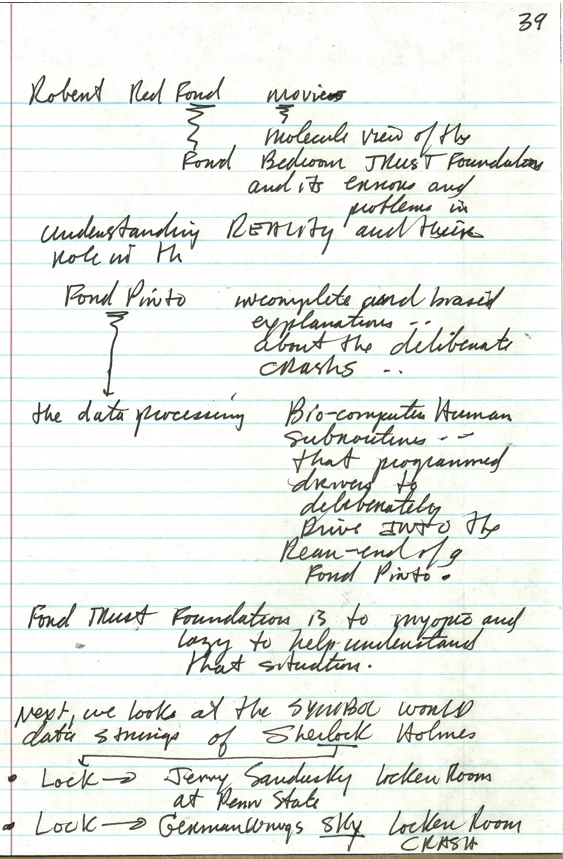 39
Robert Red Ford movies
molecule view of the
Ford Bedroom TRUST Foundation
and its errors and
problems in
understanding REALITY and their
role in th
Ford Pinto incomplete and biased
explanations ..
about the deliberate
crashs ..
the data processing Bio-computer Human
subroutines --
that programmed
drivers to
deliberately
Drive INTO the
Rear-end of a
Ford Pinto.
Ford TRUST Foundation is to myopic and
lazy to help understand
that situation.
Next, we looks at the SYMBOL WORLD
data strings of Sherlock Holmes
• Lock → Jerry Sandusky Locker Room
at Penn State
• Lock → GermanWings Sky Locker Room
CRASH